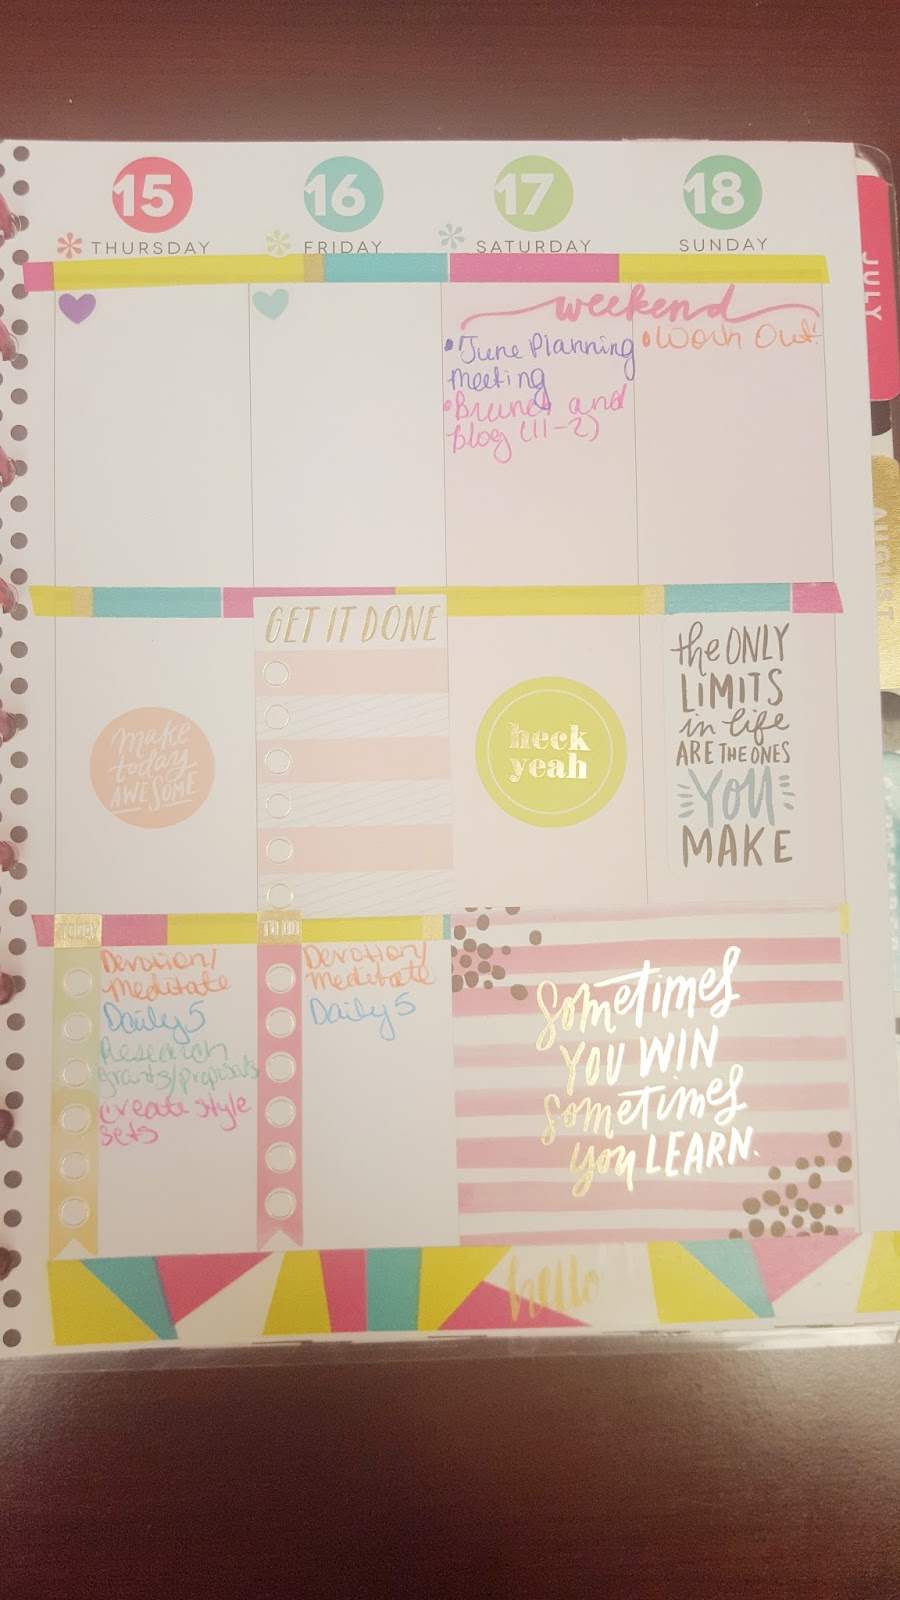 15
THURSDAY
16
FRIDAY
17
SATURDAY
18
SUNDAY
JULY
weekend
• June Planning
Meeting
• Brunch and
blog (11-2)
• Work Out!
AUGUST
GET IT DONE
make
today
AWESOME
heck
yeah
the ONLY
LIMITS
in life
ARE THE ONES
YOU
MAKE
TODAY
Devotion/
Meditate
Daily 5
Research
grants/proposals
create style
sets
TO DO
Devotion/
Meditate
Daily 5
Sometimes
YOU WIN
Sometimes
you LEARN.
hello